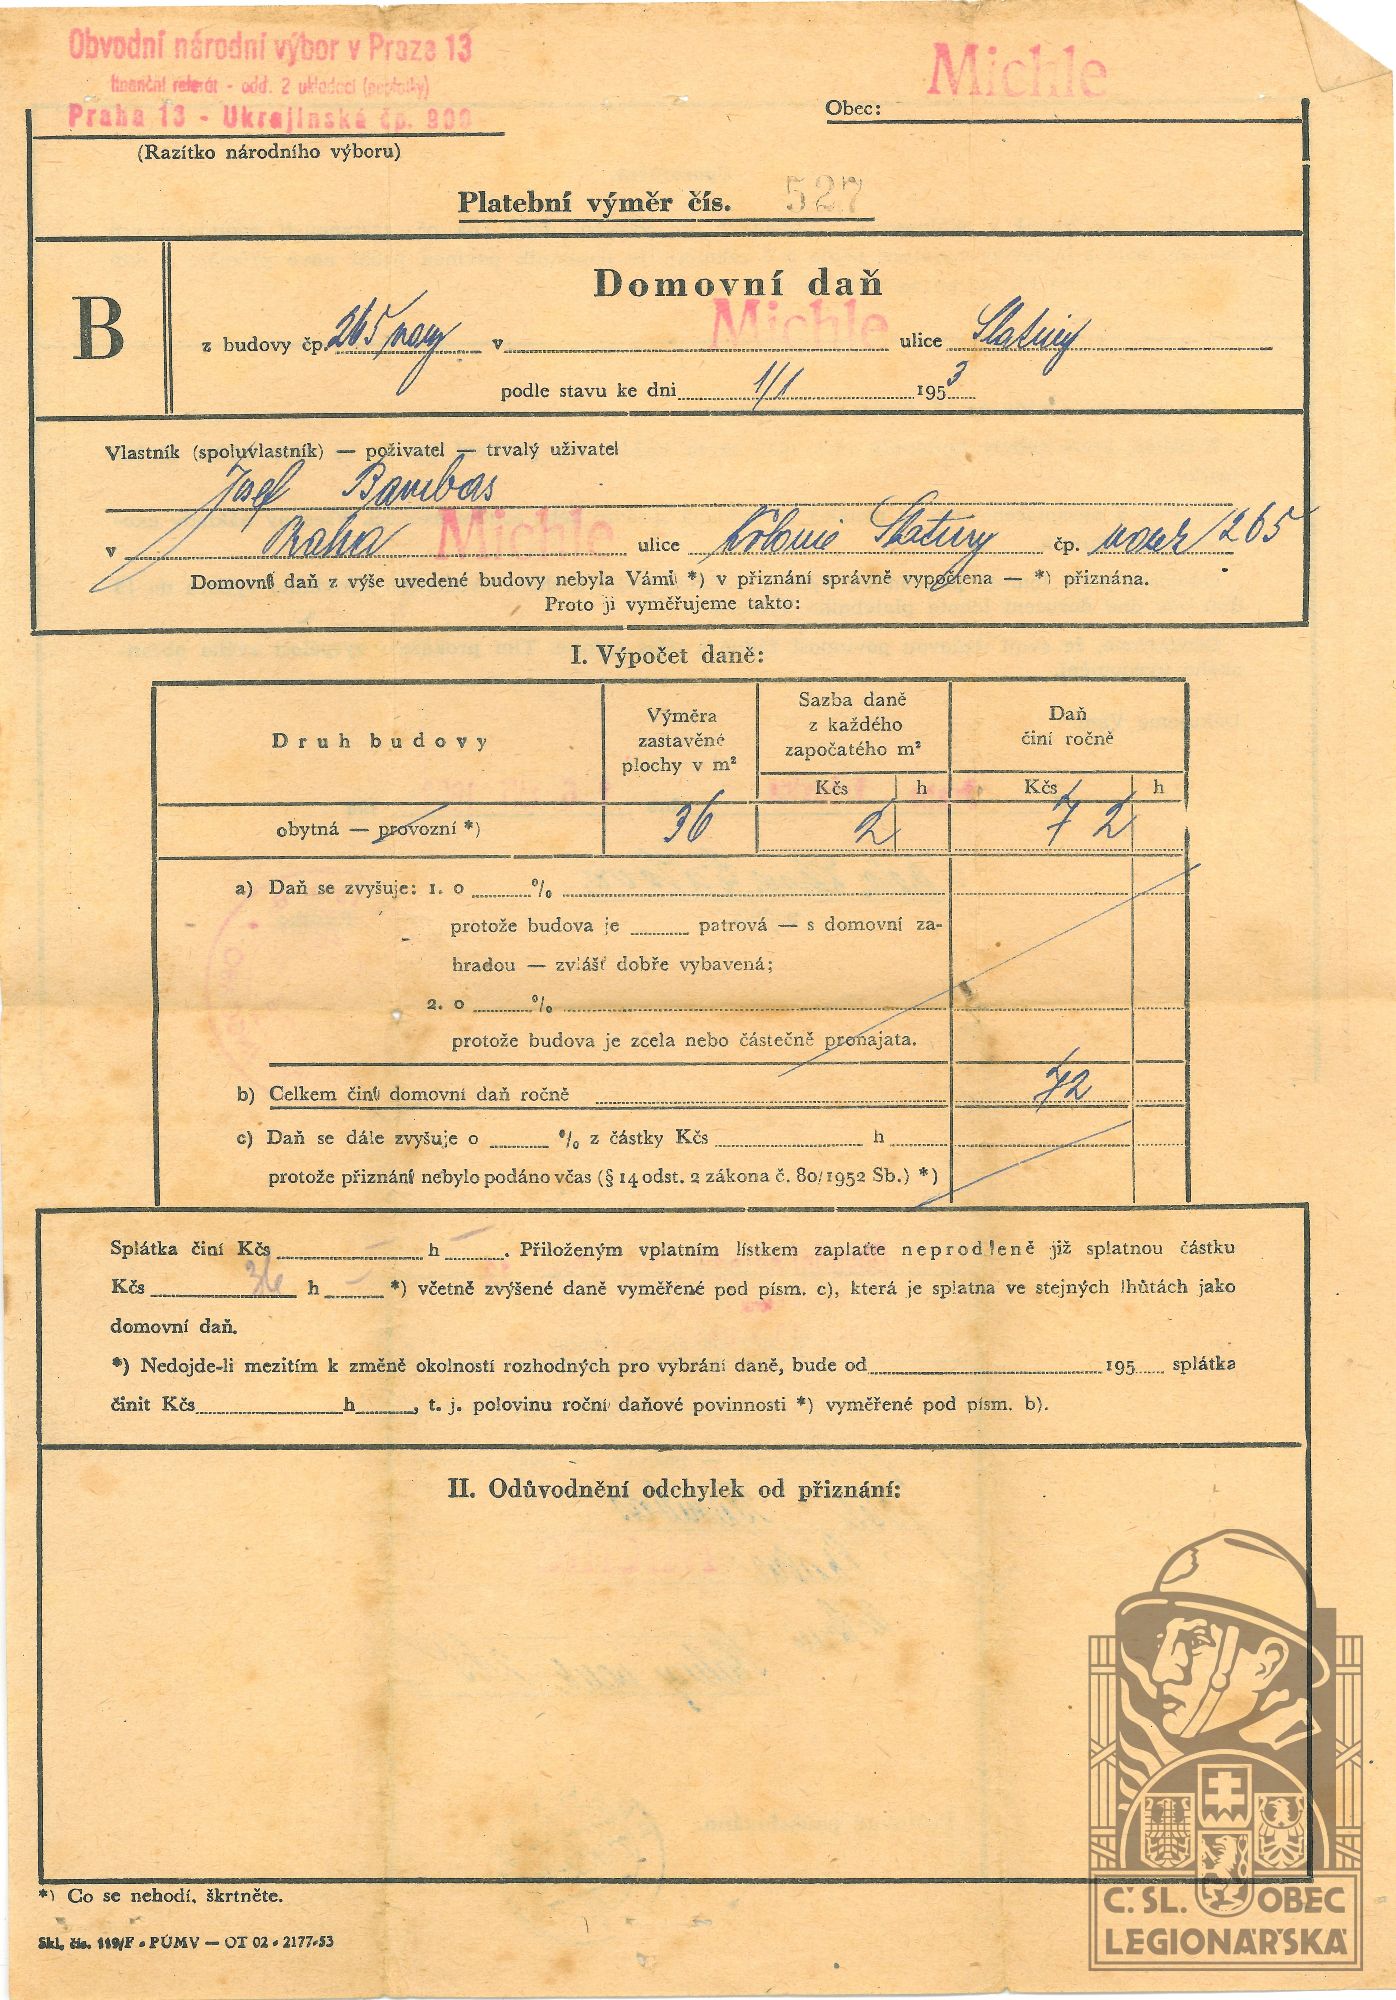 Obvodní národní výbor v Praze 13
finanční referát - odd. 2 ukládací (poplatky)
Praha 13 - Ukrajinská čp. 800
(Razítko národního výboru)
Obec: Michle
Platební výměr čís. 527
B
Domovní daň
z budovy čp. 265 nouz v Michle ulice Slatiny
podle stavu ke dni 1/1 1953
Vlastník (spoluvlastník) — poživatel — trvalý uživatel
Josef Bambas
v Praha Michle ulice Kolonie Slatiny čp. nouz 265
Domovní daň z výše uvedené budovy nebyla Vámi *) v přiznání správně vypočtena — *) přiznána.
Proto ji vyměřujeme takto:
I. Výpočet daně:
Druh budovy
Výměra zastavěné plochy v m²
Sazba daně z každého započatého m²
Daň činí ročně
Kčs h Kčs h
obytná — provozní *) 36 2 72
a) Daň se zvyšuje: 1. o % 
protože budova je patrová — s domovní za-
hradou — zvlášť dobře vybavená;
2. o %
protože budova je zcela nebo částečně pronajata.
b) Celkem činí domovní daň ročně 72
c) Daň se dále zvyšuje o % z částky Kčs h
protože přiznání nebylo podáno včas (§ 14 odst. 2 zákona č. 80/1952 Sb.) *)
Splátka činí Kčs — h —. Přiloženým vplatním lístkem zaplaťte neprodleně již splatnou částku
Kčs 36 h — *) včetně zvýšené daně vyměřené pod písm. c), která je splatna ve stejných lhůtách jako
domovní daň.
*) Nedojde-li mezitím k změně okolností rozhodných pro vybrání daně, bude od 195 splátka
činit Kčs h, t. j. polovinu roční daňové povinnosti *) vyměřené pod písm. b).
II. Odůvodnění odchylek od přiznání:
*) Co se nehodí, škrtněte.
Skl. čís. 119/F - PÚMV — OT 02 - 2177-53
Č. SL. OBEC
LEGIONÁŘSKÁ